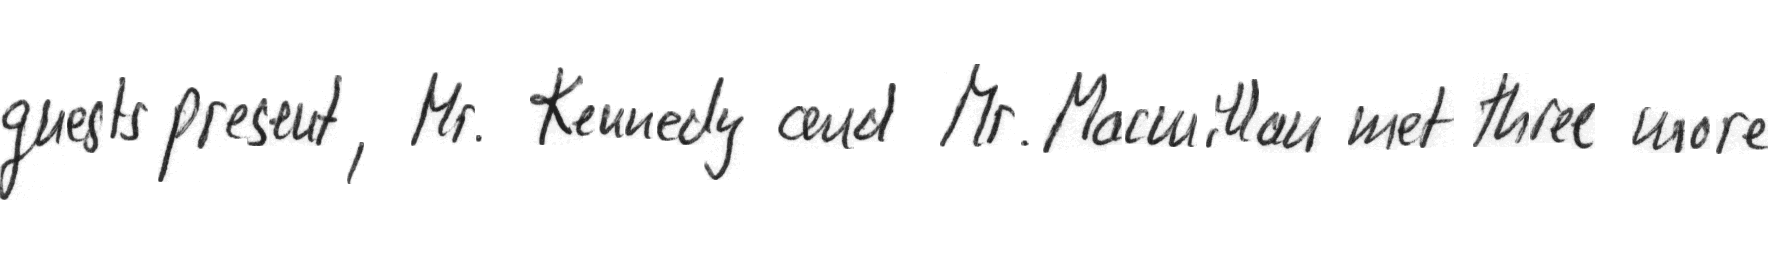 guests present, Mr. Kennedy and Mr. Macmillan met three more